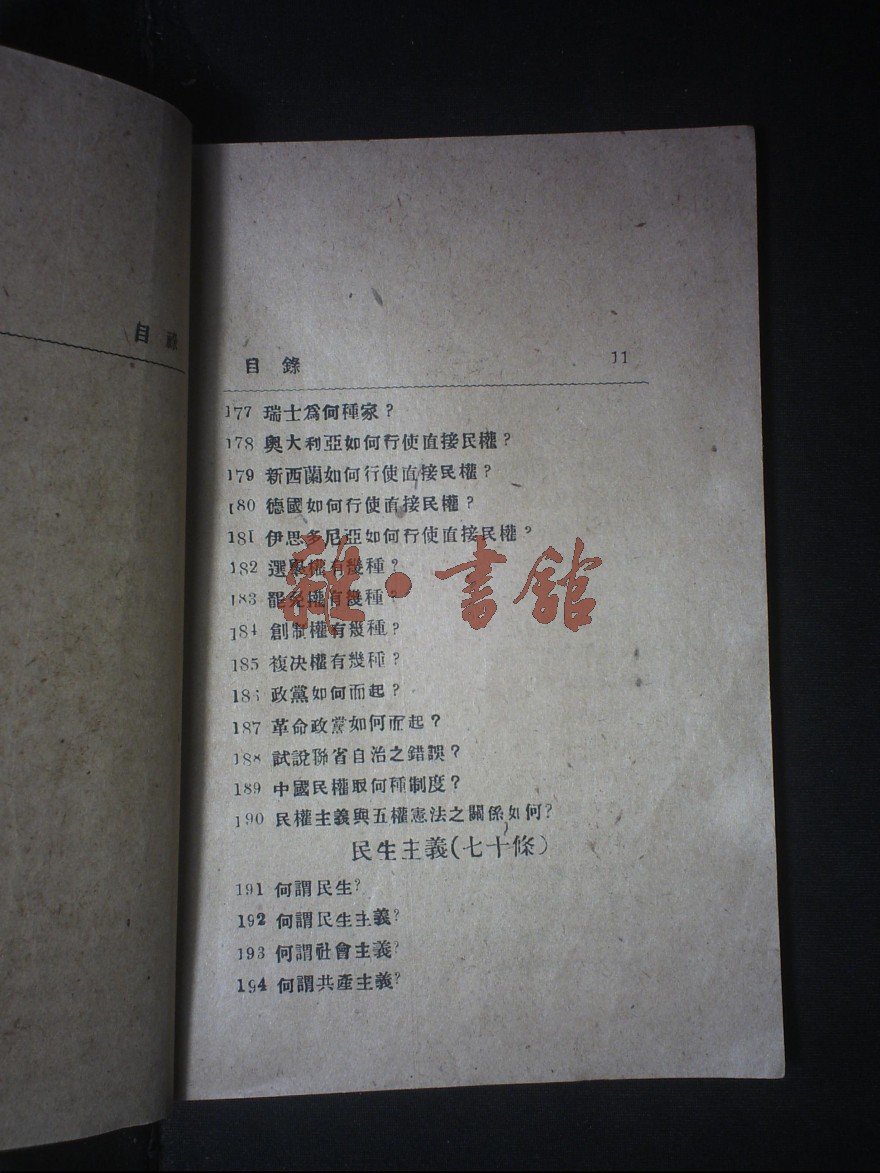 目
目錄 11
177 瑞士爲何種家？
178 奧大利亞如何行使直接民權？
179 新西蘭如何行使直接民權？
180 德國如何行使直接民權？
181 伊思多尼亞如何行使直接民權？
182 選舉權有幾種？
183 罷免權有幾種？
184 創制權有幾種？
185 複決權有幾種？
186 政黨如何而起？
187 革命政黨如何而起？
188 試說聯省自治之錯誤？
189 中國民權取何種制度？
190 民權主義與五權憲法之關係如何？
民生主義（七十條）
191 何謂民生？
192 何謂民生主義？
193 何謂社會主義？
194 何謂共產主義？
雜·書館